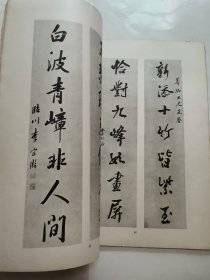 新添十竹皆紫玉
恰對九峰如畫屏
白波青嶂非人間
臨川李宗瀚